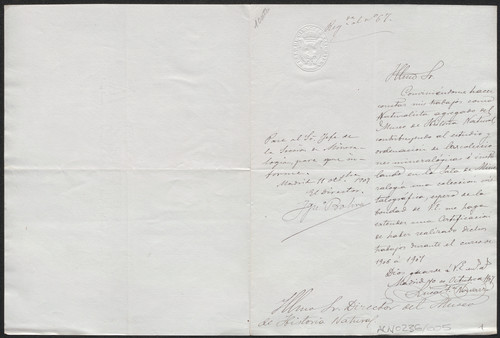 Reg.do al nº 67.
Ilmo Sr
Conviniendome hacer
constar mi trabajo como
Naturalista agregado del
Museo de Historia Natural
contribuyendo al estudio y
ordenacion de
nes mineralogicas é
lando en la Sala de Mine
ralogía una coleccion
talografica, espero de la
bondad de V.I. me haga
extender una Certificacion
de haber realizado dichos
trabajos durante el curso de
1906 á 1907
Dios guarde á V.I. m.s a.s
Madrid 10 de Octubre 1907
Pase al Sr. Jefe de
la Sección de Minera
logía para que in
forme.
Madrid 11 de Oct. 1907
El Director,
Ign. Bolívar
Ilmo Sr Director del Museo
de Historia Natural
ACN0236/005
1